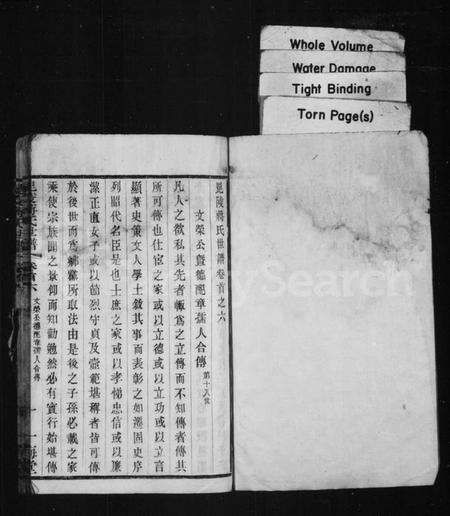 Whole Volume
Water Damage
Tight Binding
Torn Page(s)
毘陵蔣氏世譜卷首之六
文榮公暨德配章孺人合傳 第十八世
凡人之欲私其先者輒爲之立傳而不知傳者傳其
所可傳也仕宦之家或以立德或以立功或以立言
顯著史策文人學士敘其事而表彰之如漢固史序
列昭代名臣是也士庶之家或以孝悌忠信或以廉
潔正直女子或以節烈守貞及壼範堪稱者皆可傳
於後世而爲鄉黨所取法由是後之子孫必載之家
乘使宗族聞之景仰而知勸勉然必有實行始堪傳
文榮公德配章孺人合傳
一
一梅堂